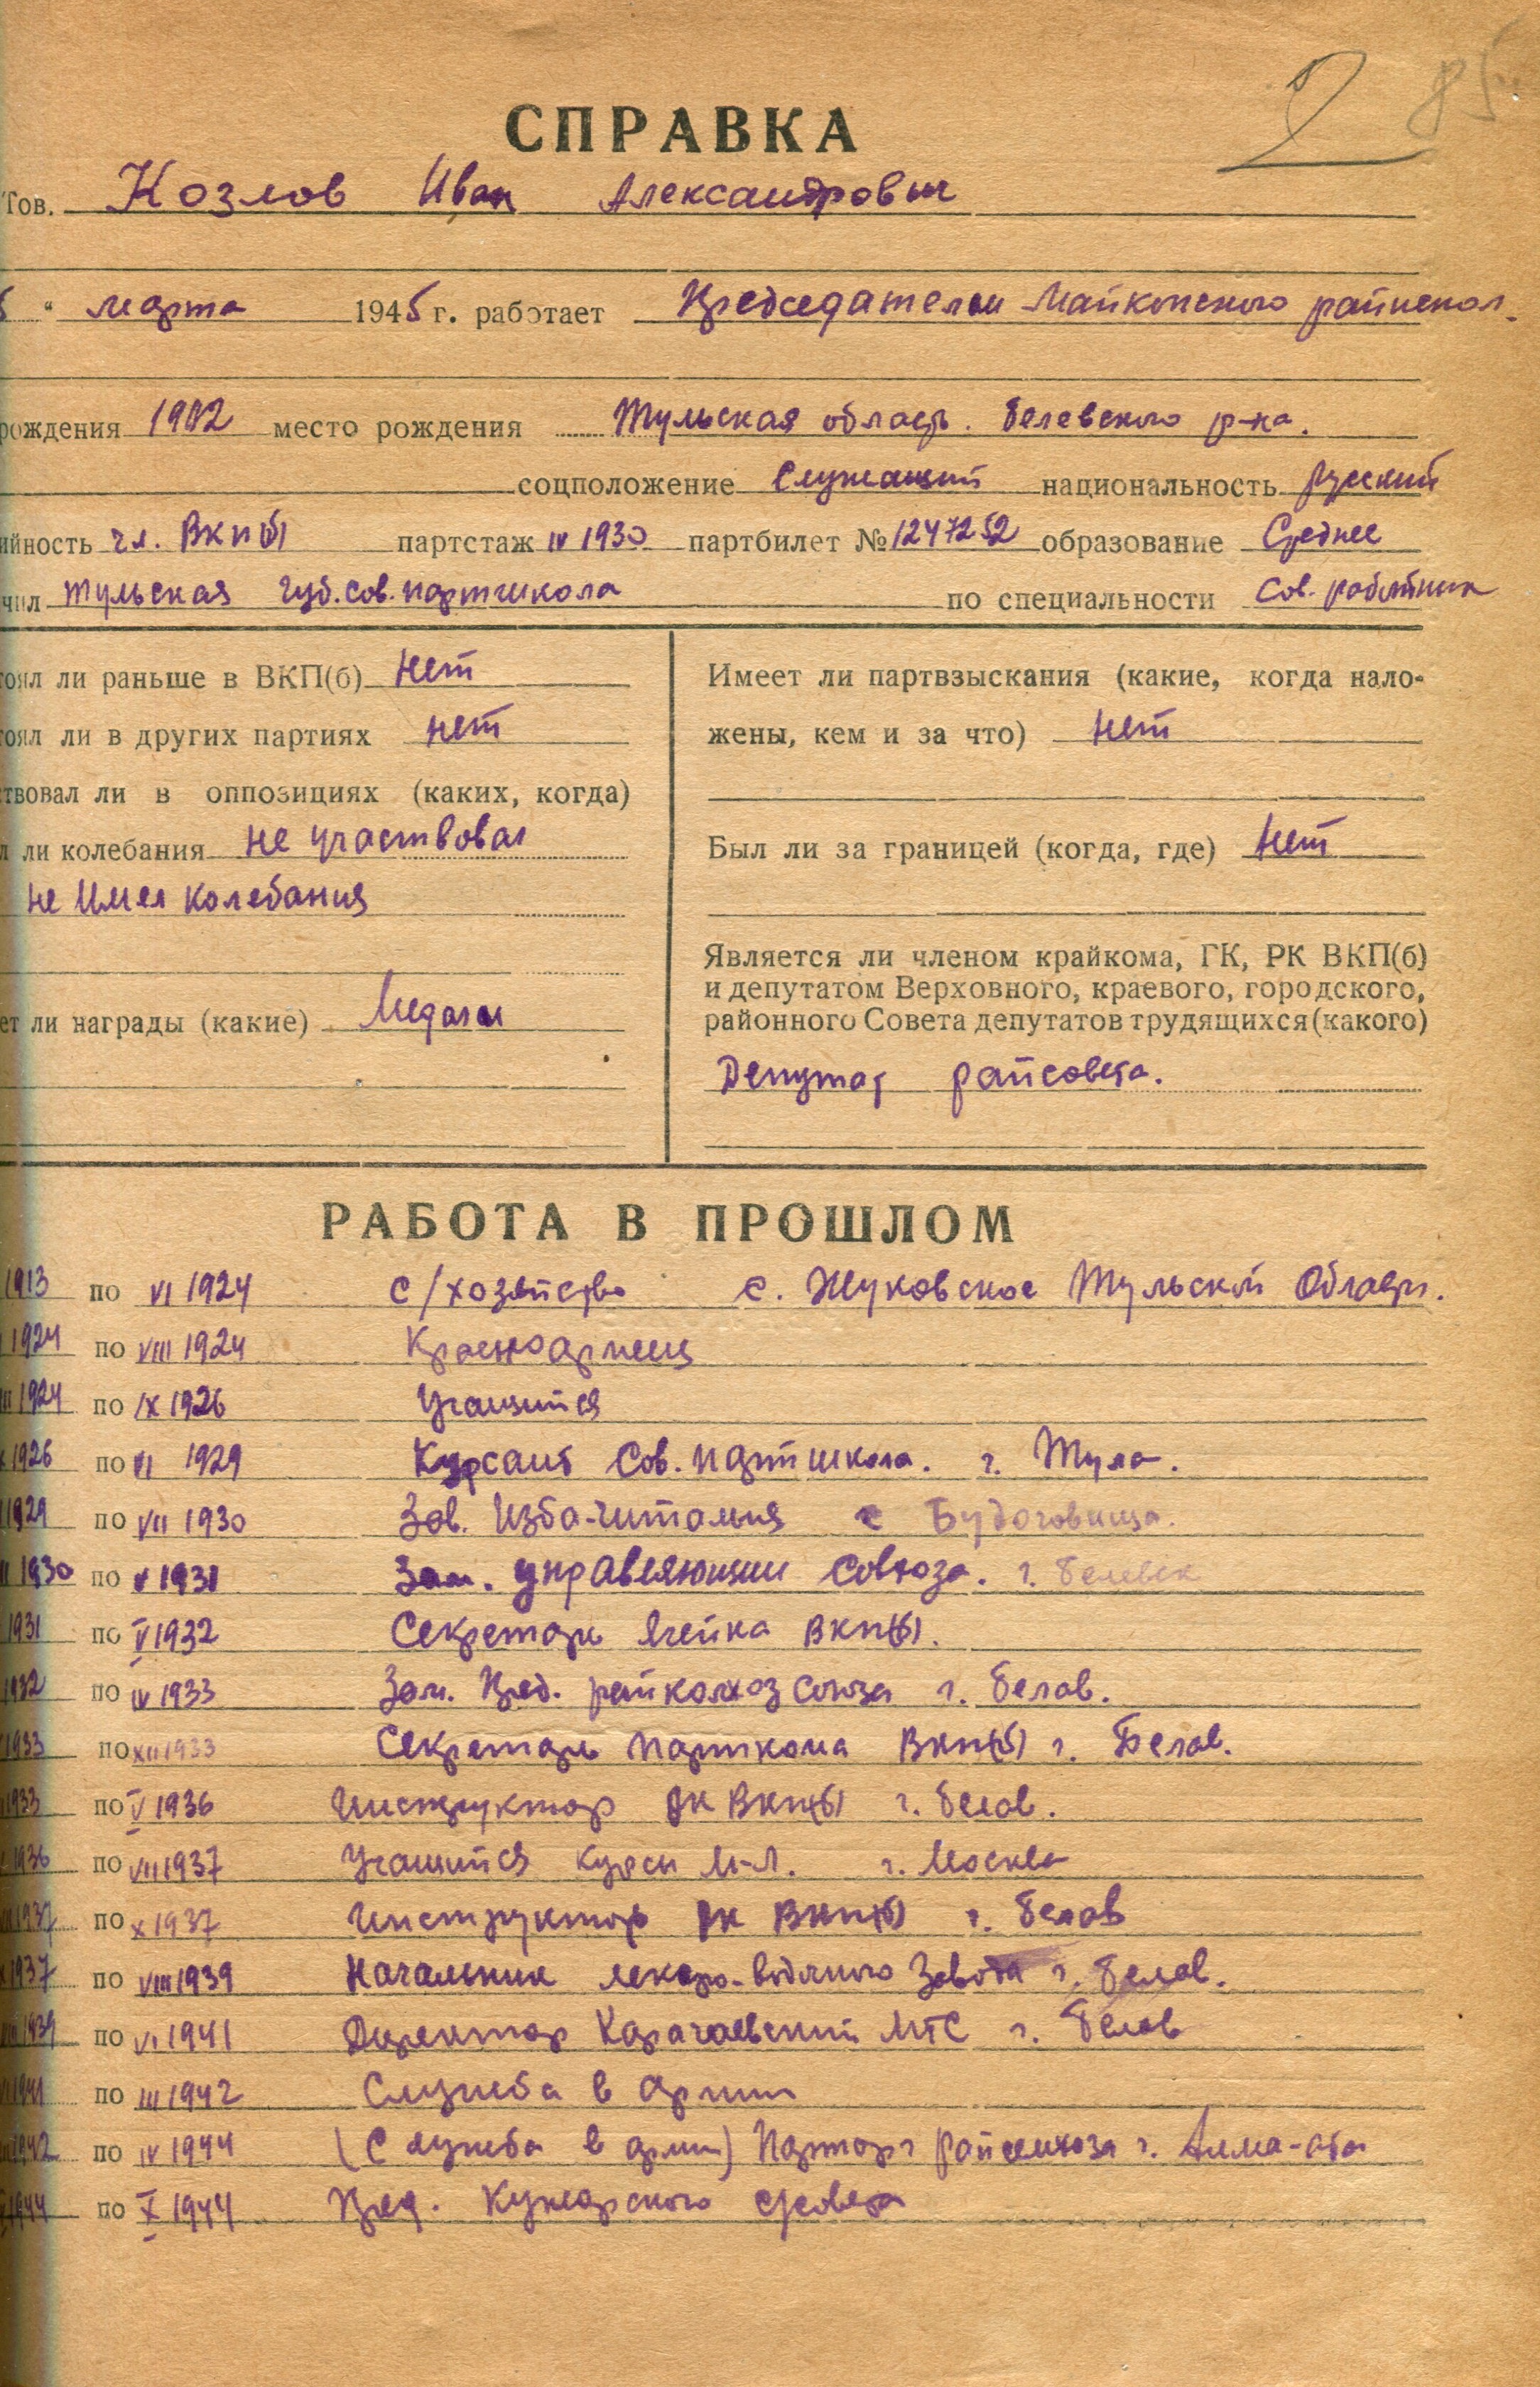 2 85
СПРАВКА
Тов. Козлов Иван Александрович
5 " марта 1945 г. работает Председателем Майкопского райиспол.
рождения 1902 место рождения Тульская область. Белевского р-на.
соцположение Служащий национальность русский
ийность чл. ВКП(б) партстаж IV 1930 партбилет № 1247252 образование Среднее
чил Тульская Губ. сов. партшкола по специальности Сов. работник
тоял ли раньше в ВКП(б) нет
тоял ли в других партиях нет
ствовал ли в оппозициях (каких, когда)
л ли колебания не участвовал
не имел колебания
ет ли награды (какие) Медаль
Имеет ли партвзыскания (какие, когда нало-
жены, кем и за что) нет
Был ли за границей (когда, где) нет
Является ли членом крайкома, ГК, РК ВКП(б)
и депутатом Верховного, краевого, городского,
районного Совета депутатов трудящихся (какого)
Депутат райсовета.
РАБОТА В ПРОШЛОМ
1913 по VI 1924 с/хозяйство с. Жуковское Тульской Области.
1924 по VIII 1924 Красноармеец
1924 по IX 1926 Учащийся
1926 по VI 1929 Курсант Сов. партшкола. г. Тула.
1929 по VII 1930 Зав. Изба-читальня с Будоговища.
1930 по V 1931 Зам. управляющий Союза. г. Белевск
1931 по V 1932 Секретарь Ячейка ВКП(б).
1932 по IV 1933 Зам. Пред. райколхоз союза г. Белев.
1933 по XII 1933 Секретарь парткома ВКП(б) г. Белев.
1933 по V 1936 Инструктор РК ВКП(б) г. Белев.
1936 по VII 1937 Учащийся курсы М-Л. г. Москва
1937 по X 1937 Инструктор РК ВКП(б) г. Белев
1937 по VIII 1939 Начальник ликеро-водочного Завода г. Белев.
1939 по VI 1941 Директор Карачаевский МТС г. Белев
1941 по III 1942 Служба в армии
1942 по IV 1944 (Служба в армии) Парторг г. Алма-ата
1944 по X 1944 Пред. Кужорского с/совета